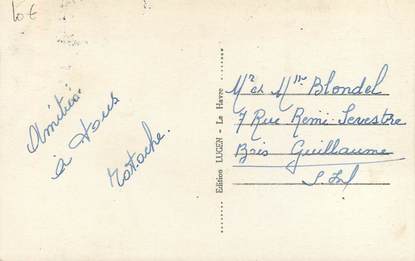 10 €
Amitiés
à tous
Edition LUGEN - Le Havre
Mr et Mme Blondel
7 Rue Remi Sevestre
Bois Guillaume
S. Inf